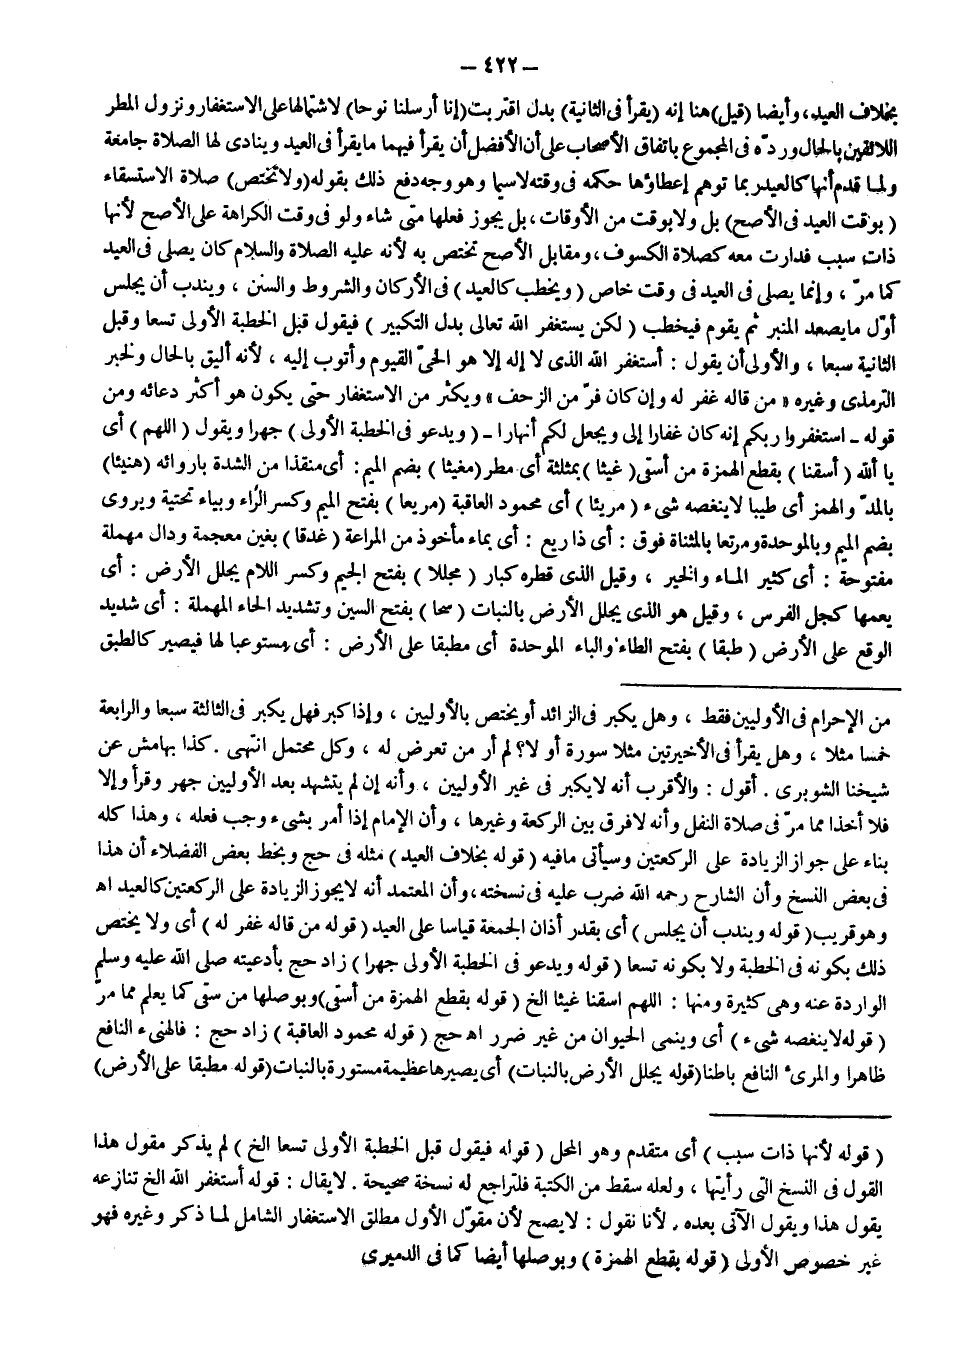 — ٤٢٢ —
بخلاف العيد، وأيضا (قيل) هنا إنه (يقرأ فى الثانية) بدل اقتربت (إنا أرسلنا نوحا) لاشتمالها على الاستغفار ونزول المطر
اللائقين بالحال ورده فى المجموع باتفاق الأصحاب على أن الأفضل أن يقرأ فيهما ما يقرأ فى العيد وينادى لها الصلاة جامعة
ولما قدم أنها كالعيد ربما توهم إعطاؤها حكمه فى وقته لاسيما وهو وجه دفع ذلك بقوله (ولا تختص) صلاة الاستسقاء
( بوقت العيد فى الأصح) بل ولا بوقت من الأوقات، بل يجوز فعلها متى شاء ولو فى وقت الكراهة على الأصح لأنها
ذات سبب فدارت معه كصلاة الكسوف، ومقابل الأصح تختص به لأنه عليه الصلاة والسلام كان يصلى فى العيد
كما مرّ ، وإنما يصلى فى العيد فى وقت خاص ( ويخطب كالعيد ) فى الأركان والشروط والسنن ، ويندب أن يجلس
أوّل ما يصعد المنبر ثم يقوم فيخطب ( لكن يستغفر الله تعالى بدل التكبير ) فيقول قبل الخطبة الأولى تسعا وقبل
الثانية سبعا ، والأولى أن يقول : أستغفر الله الذى لا إله إلا هو الحىّ القيوم وأتوب إليه ، لأنه أليق بالحال ولخبر
الترمذى وغيره « من قاله غفر له وإن كان فرّ من الزحف » ويكثر من الاستغفار حتى يكون هو أكثر دعائه ومن
قوله ـ استغفروا ربكم إنه كان غفارا إلى ويجعل لكم أنهارا ـ ( ويدعو فى الخطبة الأولى ) جهرا ويقول ( اللهم ) أى
يا ألله ( أسقنا ) بقطع الهمزة من أسقى ( غيثا ) بمثلثة أى مطر (مغيثا ) بضم الميم: أى منقذا من الشدة باروائه (هنيئا)
بالمدّ والهمز أى طيبا لاينغصه شىء ( مريئا ) أى محمود العاقبة (مريعا ) بفتح الميم وكسر الراء وبياء تحتية ويروى
بضم الميم وبالموحدة ومرتعا بالمثناة فوق : أى ذا ريع : أى بماء مأخوذ من المراعة ( غدقا ) بغين معجمة ودال مهملة
مفتوحة : أى كثير الماء والخير ، وقيل الذى قطره كبار ( مجللا ) بفتح الجيم وكسر اللام يجلل الأرض : أى
يعمها كجل الفرس ، وقيل هو الذى يجلل الأرض بالنبات ( سحا ) بفتح السين وتشديد الحاء المهملة : أى شديد
الوقع على الأرض ( طبقا ) بفتح الطاء والباء الموحدة أى مطبقا على الأرض : أى مستوعبا لها فيصير كالطبق
من الإحرام فى الأوليين فقط ، وهل يكبر فى الزائد أو يختص بالأوليين ، وإذا كبر فهل يكبر فى الثالثة سبعا والرابعة
خمسا مثلا ، وهل يقرأ فى الأخيرتين مثلا سورة أو لا؟ لم أر من تعرض له ، وكل محتمل انتهى . كذا بهامش عن
شيخنا الشوبرى . أقول : والأقرب أنه لايكبر فى غير الأوليين ، وأنه إن لم يتشهد بعد الأوليين جهر وقرأ وإلا
فلا أخذا مما مرّ فى صلاة النفل وأنه لافرق بين الركعة وغيرها ، وأن الإمام إذا أمر بشىء وجب فعله ، وهذا كله
بناء على جواز الزيادة على الركعتين وسيأتى مافيه ( قوله بخلاف العيد ) مثله فى حج وبخط بعض الفضلاء أن هذا
فى بعض النسخ وأن الشارح رحمه الله ضرب عليه فى نسخته، وأن المعتمد أنه لايجوز الزيادة على الركعتين كالعيد اه
وهو قريب ( قوله ويندب أن يجلس ) أى بقدر أذان الجمعة قياسا على العيد ( قوله من قاله غفر له ) أى ولا يختص
ذلك بكونه فى الخطبة ولا بكونه تسعا ( قوله ويدعو فى الخطبة الأولى جهرا ) زاد حج بأدعيته صلى الله عليه وسلم
الواردة عنه وهى كثيرة ومنها : اللهم اسقنا غيثا الخ ( قوله بقطع الهمزة من أسقى) وبوصلها من سقى كما يعلم مما مرّ
( قوله لاينغصه شىء ) أى وينمى الحيوان من غير ضرر اه حج ( قوله محمود العاقبة ) زاد حج : فالهنىء النافع
ظاهرا والمرىء النافع باطنا (قوله يجلل الأرض بالنبات) أى يصيرها عظيمة مستورة بالنبات (قوله مطبقا على الأرض)
( قوله لأنها ذات سبب ) أى متقدم وهو المحل ( قوله فيقول قبل الخطبة الأولى تسعا الخ ) لم يذكر مقول هذا
القول فى النسخ التى رأيتها ، ولعله سقط من الكتبة فلتراجع له نسخة صحيحة . لايقال : قوله أستغفر الله الخ تنازعه
يقول هذا ويقول الآتى بعده . لأنا نقول : لايصح لأن مقوّل الأول مطلق الاستغفار الشامل لما ذكر وغيره فهو
غير خصوص الأولى ( قوله بقطع الهمزة ) وبوصلها أيضا كما فى الدميرى